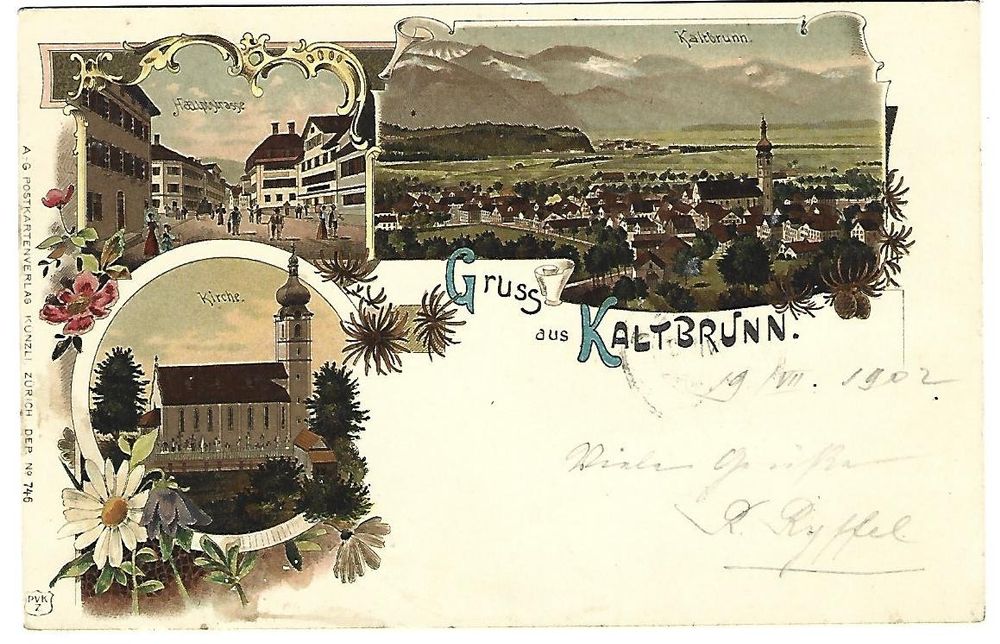 Hauptstrasse
Kaltbrunn.
Kirche.
Gruss
aus KALTBRUNN.
19/VII. 1902
Viele Grüsse
R. Ryffel
A-G POSTKARTENVERLAG KÜNZLI ZÜRICH DEP. No 746
PVK
Z